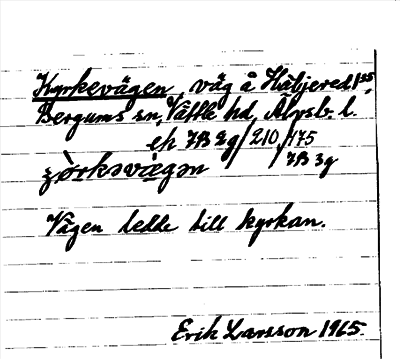 Kyrkevägen, väg å Häljered 1:35,
Bergums sn, Vättle hd, Älvsb. l.
ek 7B 2g / 210 / 175
7B 3g
Vägen ledde till kyrkan.
Erik Larsson 1965.